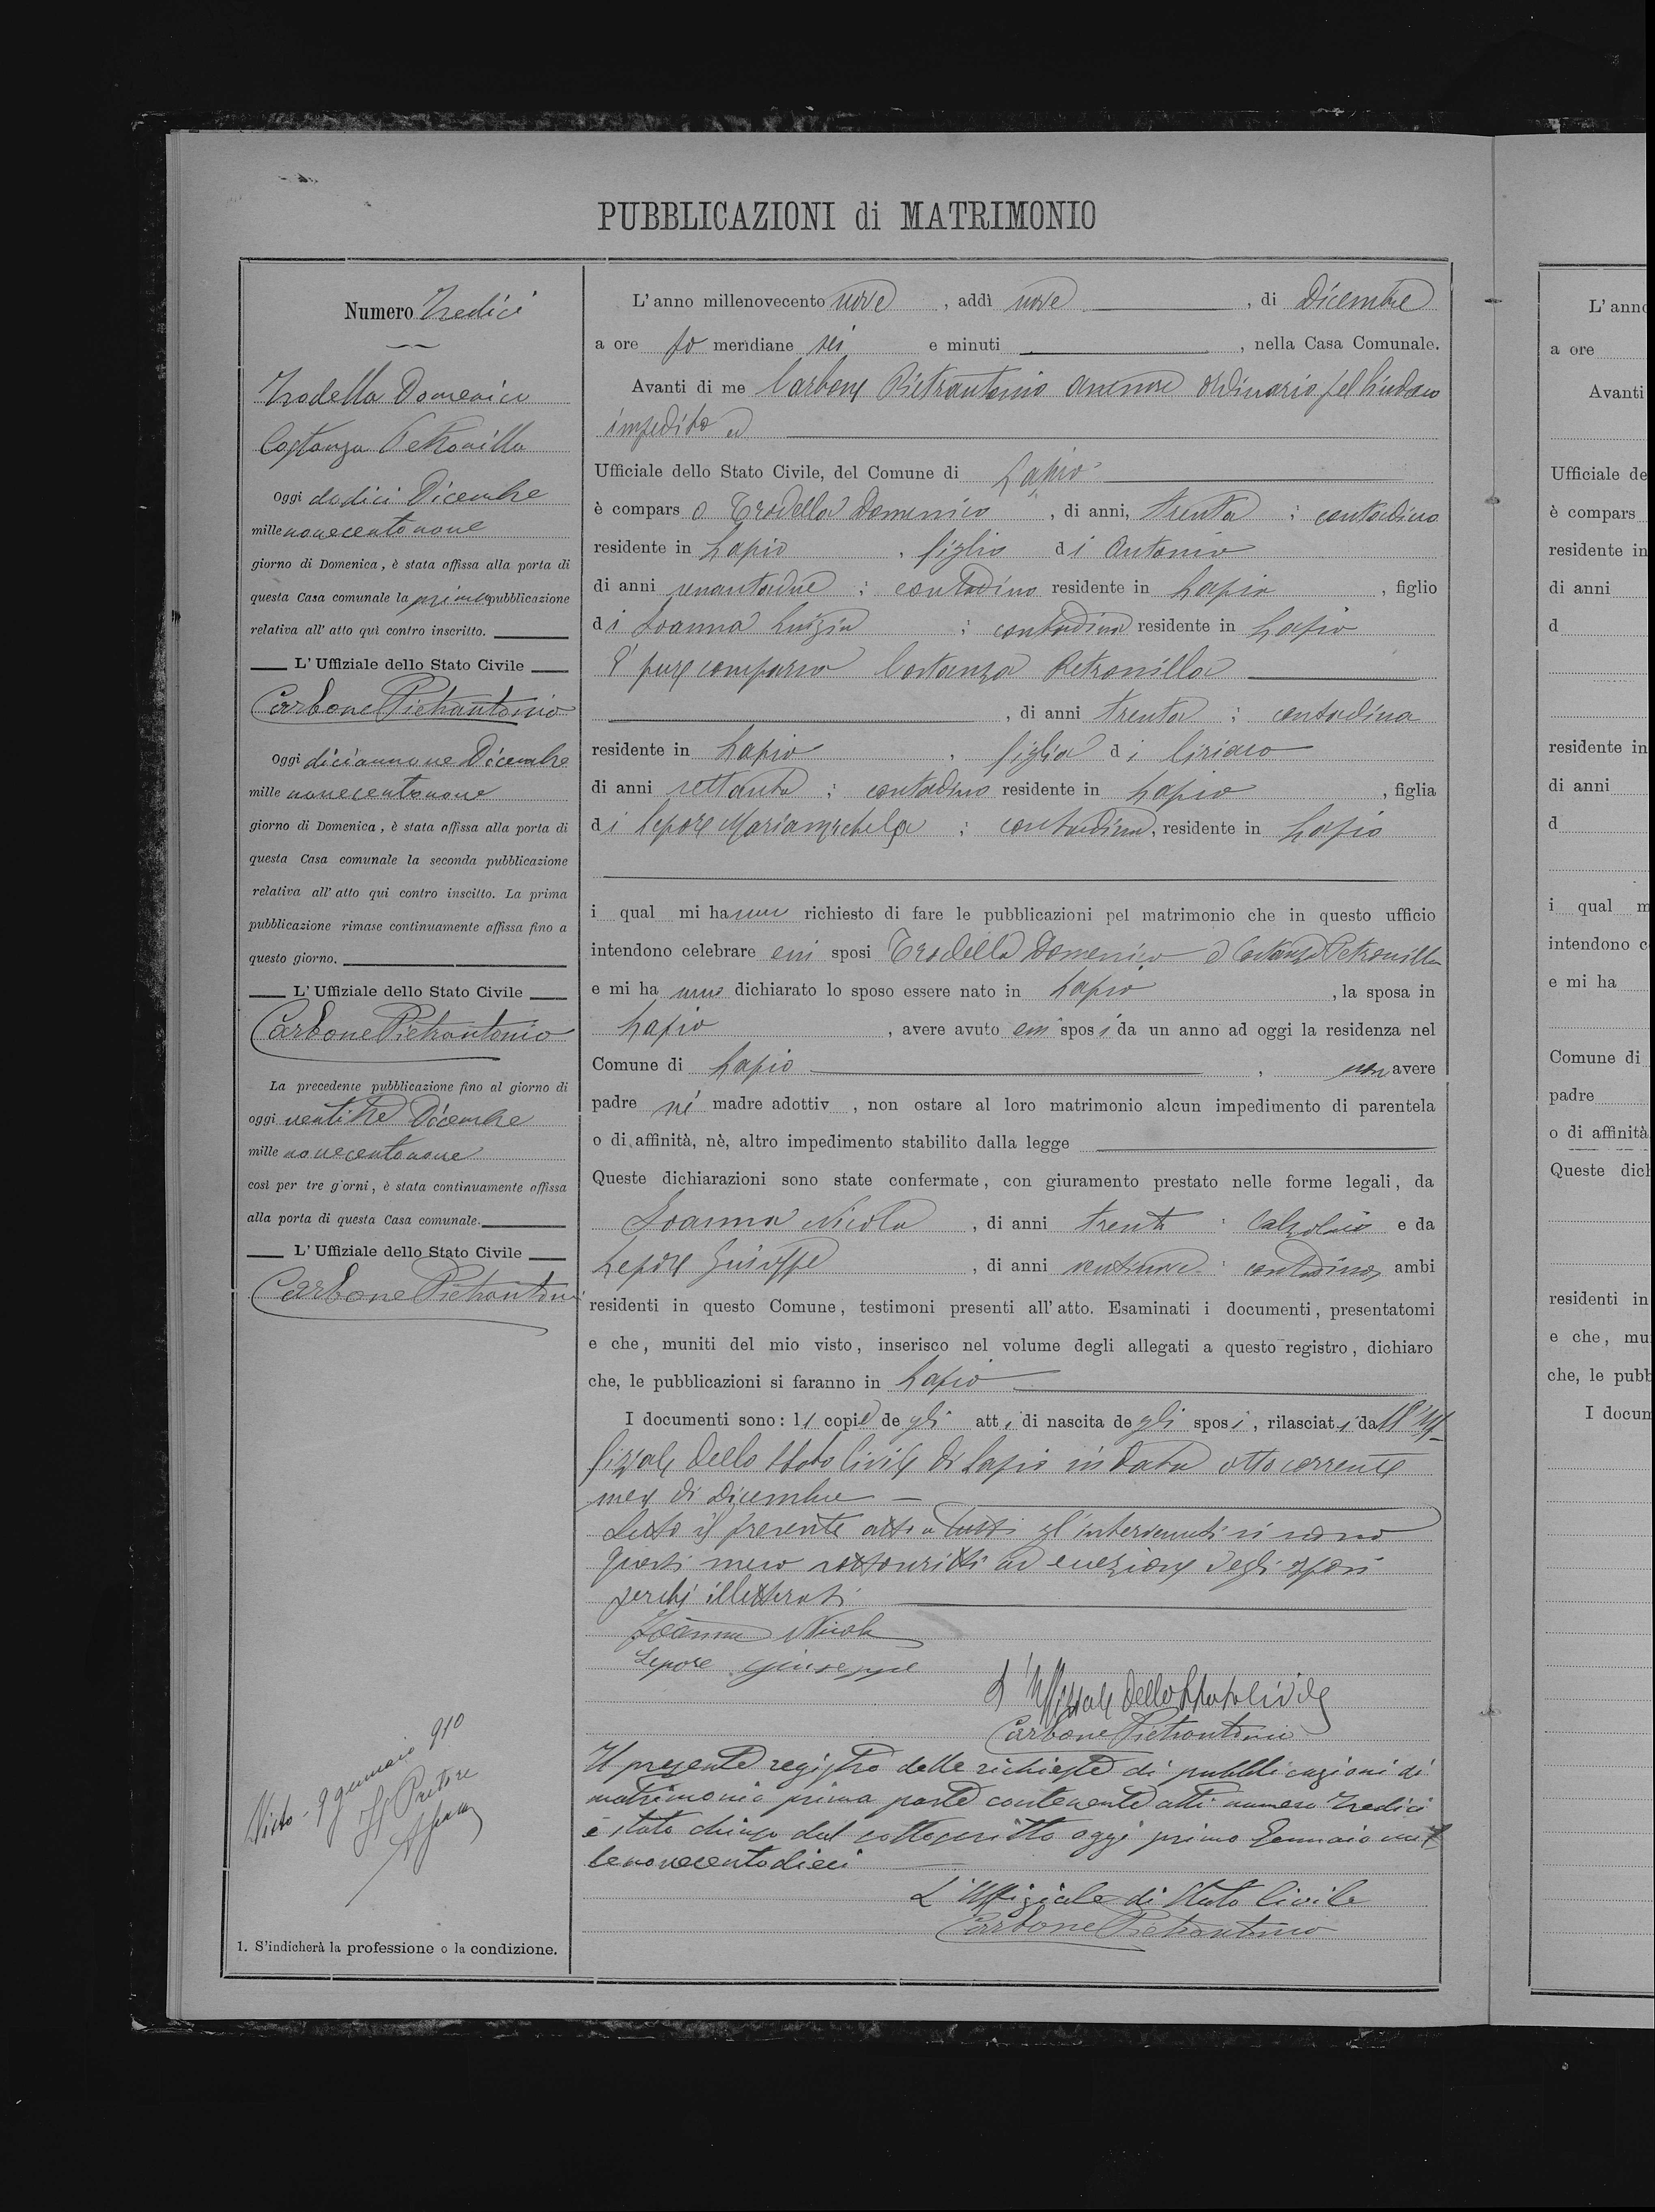 PUBBLICAZIONI di MATRIMONIO
Numero Tredici
Trodella Domenico
Costanza Petronilla
Oggi dodici Dicembre
mille novecentonove
giorno di Domenica, è stata affissa alla porta di
questa Casa comunale la prima pubblicazione
relativa all' atto quì contro inscritto.
L' Uffiziale dello Stato Civile
Carbone Pietrantonio
Oggi diciannove Dicembre
mille novecentonove
giorno di Domenica, è stata affissa alla porta di
questa Casa comunale la seconda pubblicazione
relativa all' atto qui contro inscitto. La prima
pubblicazione rimase continuamente affissa fino a
questo giorno.
L' Uffiziale dello Stato Civile
Carbone Pietrantonio
La precedente pubblicazione fino al giorno di
oggi ventitre Dicembre
mille novecentonove
così per tre g orni, è stata continuamente affissa
alla porta di questa Casa comunale.
L' Uffiziale dello Stato Civile
Carbone Pietrantonio
Visto - 9 gennaio 910
Il Pretore
1. S'indicherà la professione o la condizione.
L' anno millenovecento nove, addì nove, di Dicembre
a ore po meridiane sei e minuti, nella Casa Comunale.
Avanti di me Carbone Pietrantonio assessore ordinario pel Sindaco
impedito ed
Ufficiale dello Stato Civile, del Comune di Lapio
è compars o Trodella Domenico, di anni, trenta : contadino
residente in Lapio, figlio di Antonio
di anni sessantadue : contadino residente in Lapio, figlio
di Ioanna Luigia : contadina residente in Lapio
E' pure comparsa Costanza Petronilla
, di anni trenta : contadina
residente in Lapio, figlia di Ciriaco
di anni settanta : contadino residente in Lapio, figlia
di Lepore Mariamichela : contadina, residente in Lapio
i qual mi hanno richiesto di fare le pubblicazioni pel matrimonio che in questo ufficio
intendono celebrare essi sposi Trodella Domenico e Costanza Petronilla
e mi ha nno dichiarato lo sposo essere nato in Lapio, la sposa in
Lapio, avere avuto essi sposi da un anno ad oggi la residenza nel
Comune di Lapio, non avere
padre né madre adottiv, non ostare al loro matrimonio alcun impedimento di parentela
o di affinità, nè, altro impedimento stabilito dalla legge
Queste dichiarazioni sono state confermate, con giuramento prestato nelle forme legali, da
Ioanna Nicola, di anni trenta : Calzolaio e da
Lepore Giuseppe, di anni ventinove : contadino, ambi
residenti in questo Comune, testimoni presenti all' atto. Esaminati i documenti, presentatomi
e che, muniti del mio visto, inserisco nel volume degli allegati a questo registro, dichiaro
che, le pubblicazioni si faranno in Lapio
I documenti sono: l e copie de gli att i di nascita de gli spos i, rilasciat i dall'Uf-
fiziale dello Stato Civile di Lapio in data otto corrente
mese di Dicembre
Letto il presente atto a tutti gl'intervenuti si sono
questi meco sottoscritti ad eccezione degli sposi
perché illetterati
Ioanna Nicola
Lepore Giuseppe
L'Uffiziale dello Stato Civile
Carbone Pietrantonio
Il presente registro delle richieste di pubblicazioni di
matrimonio prima parte contenente atti numero Tredici
è stato chiuso dal sottoscritto oggi primo Gennaio mil
lenovecentodieci
L'Uffiziale di Stato Civile
Carbone Pietrantonio
L' anno
a ore
Avanti
Ufficiale de
è compars
residente in
di anni
d
residente in
di anni
d
i qual m
intendono c
e mi ha
Comune di
padre
o di affinità
Queste dich
residenti in
e che, mu
che, le pubb
I docum